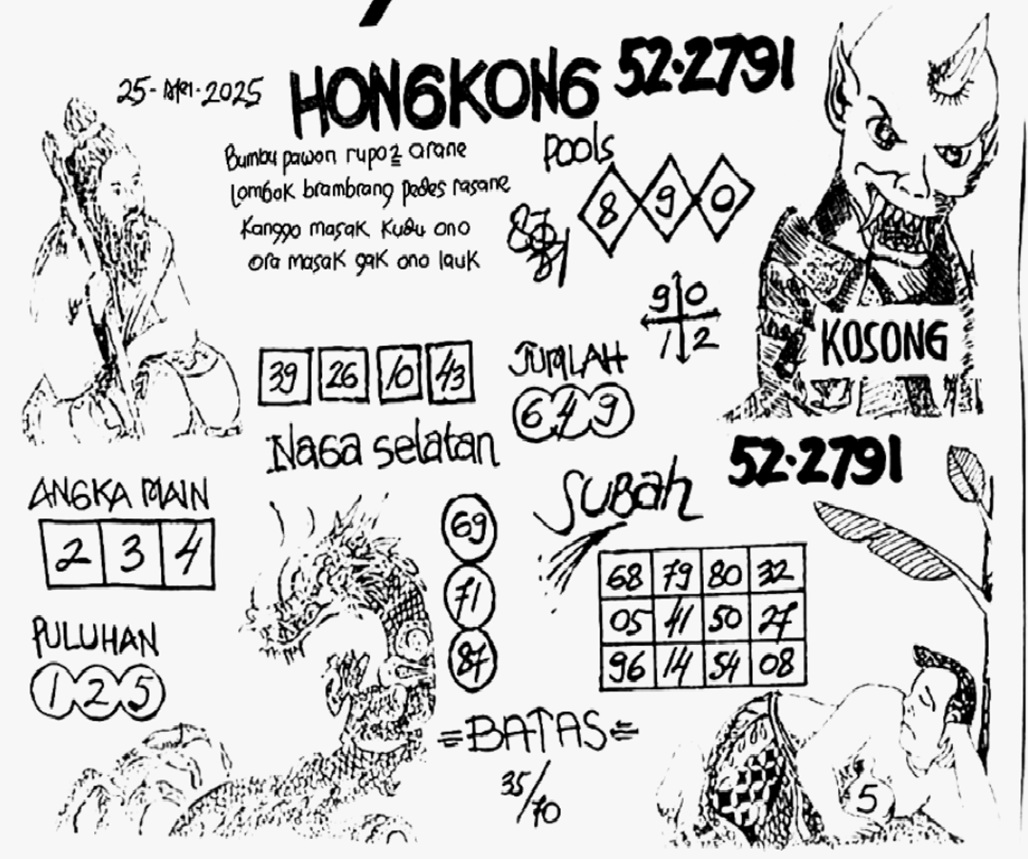 25-Apri-2025
HONGKONG 52·2791
POOLS
Bumbu pawon rupo2 arane
lombok brambrang pedes rasane
Kanggo masak Kudu ono
ora masak gak ono lauk
8 9 0
87
9 0
1 2
KOSONG
39 26 10 43
JUMLAH
6 4 9
Naga selatan
52·2791
ANGKA MAIN
2 3 4
69
71
87
SUBAH
68 79 80 32
05 41 50 27
96 14 54 08
PULUHAN
1 2 5
=BATAS=
35/70
5